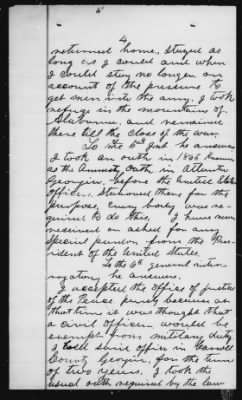 4
returned home, stayed as
long as I could and when
I could stay no longer on
account of the pressure to
get men into the army, I took
refuge in the mountains of
Alabama, and remained
there till the close of the war.
To the 5th Int. he answers
I took an oath in 1865 known
as the Amnesty oath, in Atlanta
Georgia, before the United States
officer, stationed there for the
purpose, every body was re-
quired to do this, I have never
received or asked for any
Special pardon from the Pres-
ident of the United States.
To the 6th general inter-
rogatory he answers.
I accepted the office of justice
of the Peace purely because at
that time it was thought that
a civil officer would be
exempt from military duty
I held said office in
County Georgia, for the term
of two years, I took the
usual oath required by the law